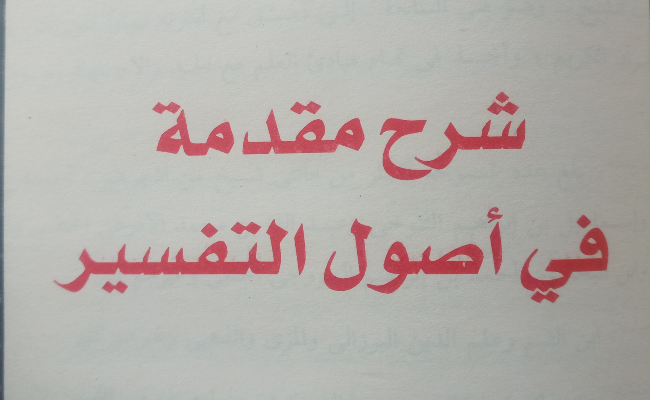 شرح مقدمة
في أصول التفسير